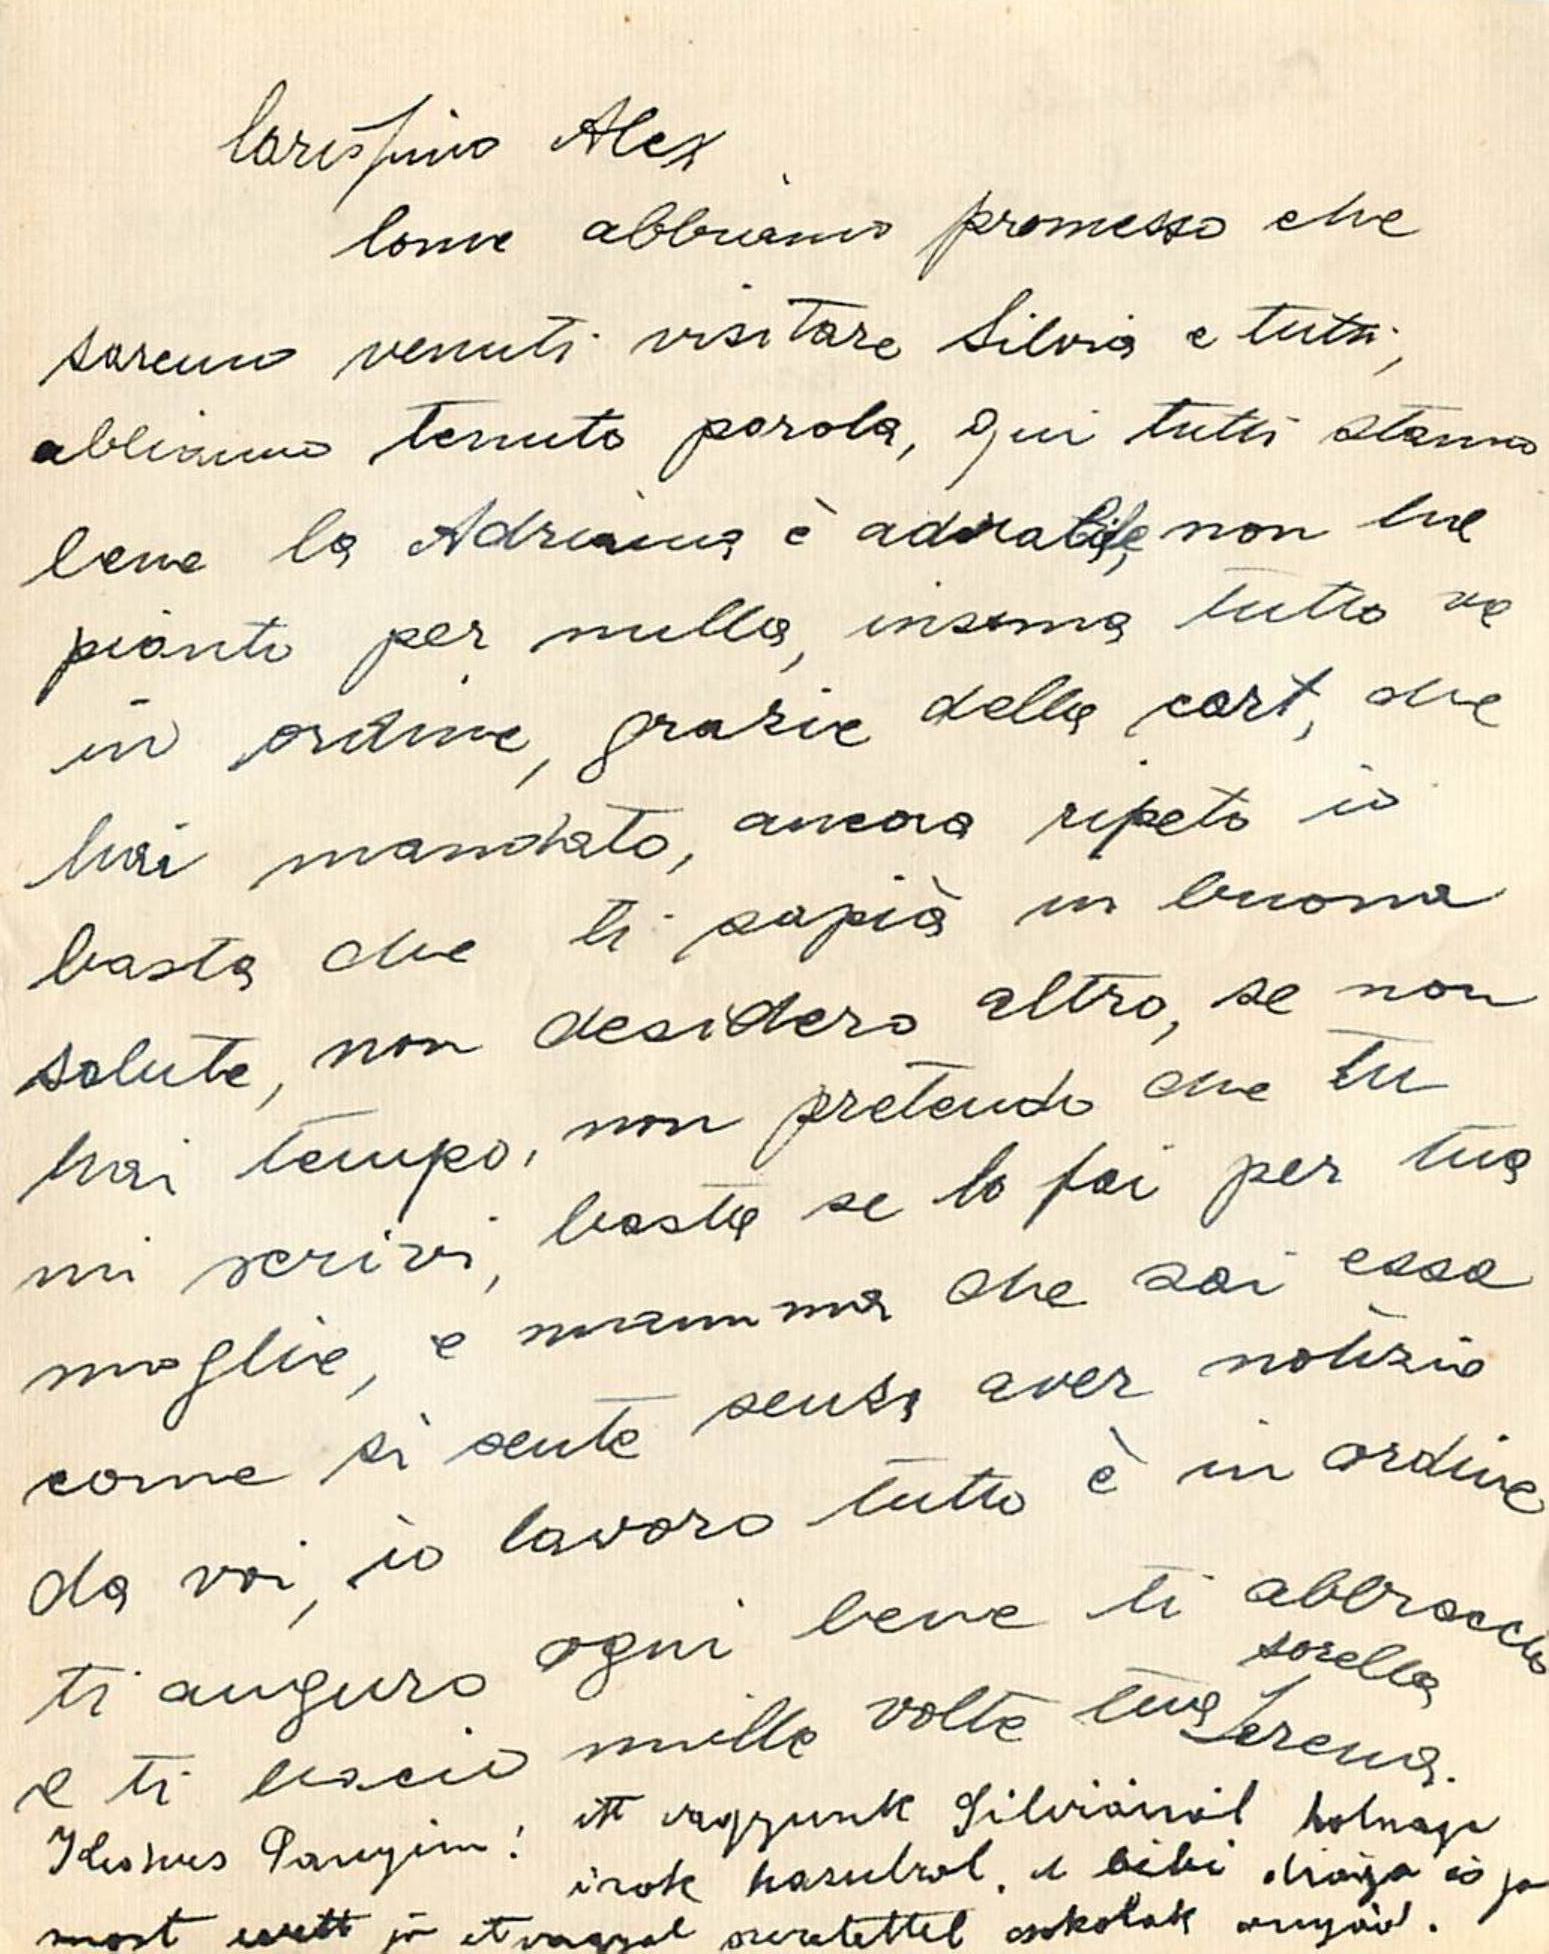 Carissimo Alex
Come abbiamo promesso che
saremo venuti visitare Silvia e tutti,
abbiamo tenuto parola, qui tutti stanno
bene la Adriana è adorabile, non ha
pianto per nulla, insoma tutto va
in ordine, grazie della cart, che
hai mandato, ancora ripeto io
basta che ti sapià in buona
salute, non desidero altro, se non
hai tempo, non pretendo che tu
mi scrivi, basta se lo fai per tua
moglie, e mamma che sai essa
come si sente senza aver notizia
da voi, io lavoro tutto è in ordine
ti auguro ogni bene ti abbraccio
e ti bacio mille volte tua sorella Serena.
itt vagyunk Silviánál holnap
irok hazulrol. a bibi drága és jo
most evett jó étvagyal szeretettel csokolak anyád.